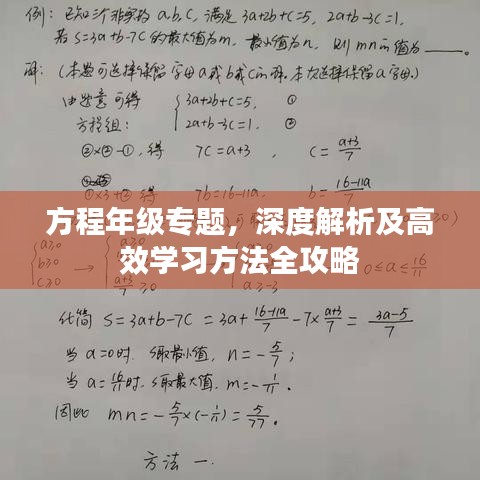 例：已知三个非负数 a,b,c，满足 3a+2b+c=5，2a+b-3c=1，
若 S=3a+b-7C 的最大值为m，最小值为n，则 mn的值为____。
解：(本题可选择保留字母a或b或C解，本次选择保留a字母.)
由题意可得 3a+2b+c=5, ①
方程组： 2a+b-3C=1. ②
②×2-①，得 7C=a+3 , C=a+3/7
①×3+②，得 7b=16-11a, b=16-11a/7
方程年级专题，深度解析及高
效学习方法全攻略
a≥0
b≥0
c≥0
化简 S=3a+b-7C = 3a+16-11a/7-7×a+3/7 = 3a-5/7
当 a=0时，S取最小值，n=-5/7；
当 a=16/11时，S取最大值，m=-1/11.
因此 mn=-5/7×(-1/11)=5/77.
方法一.